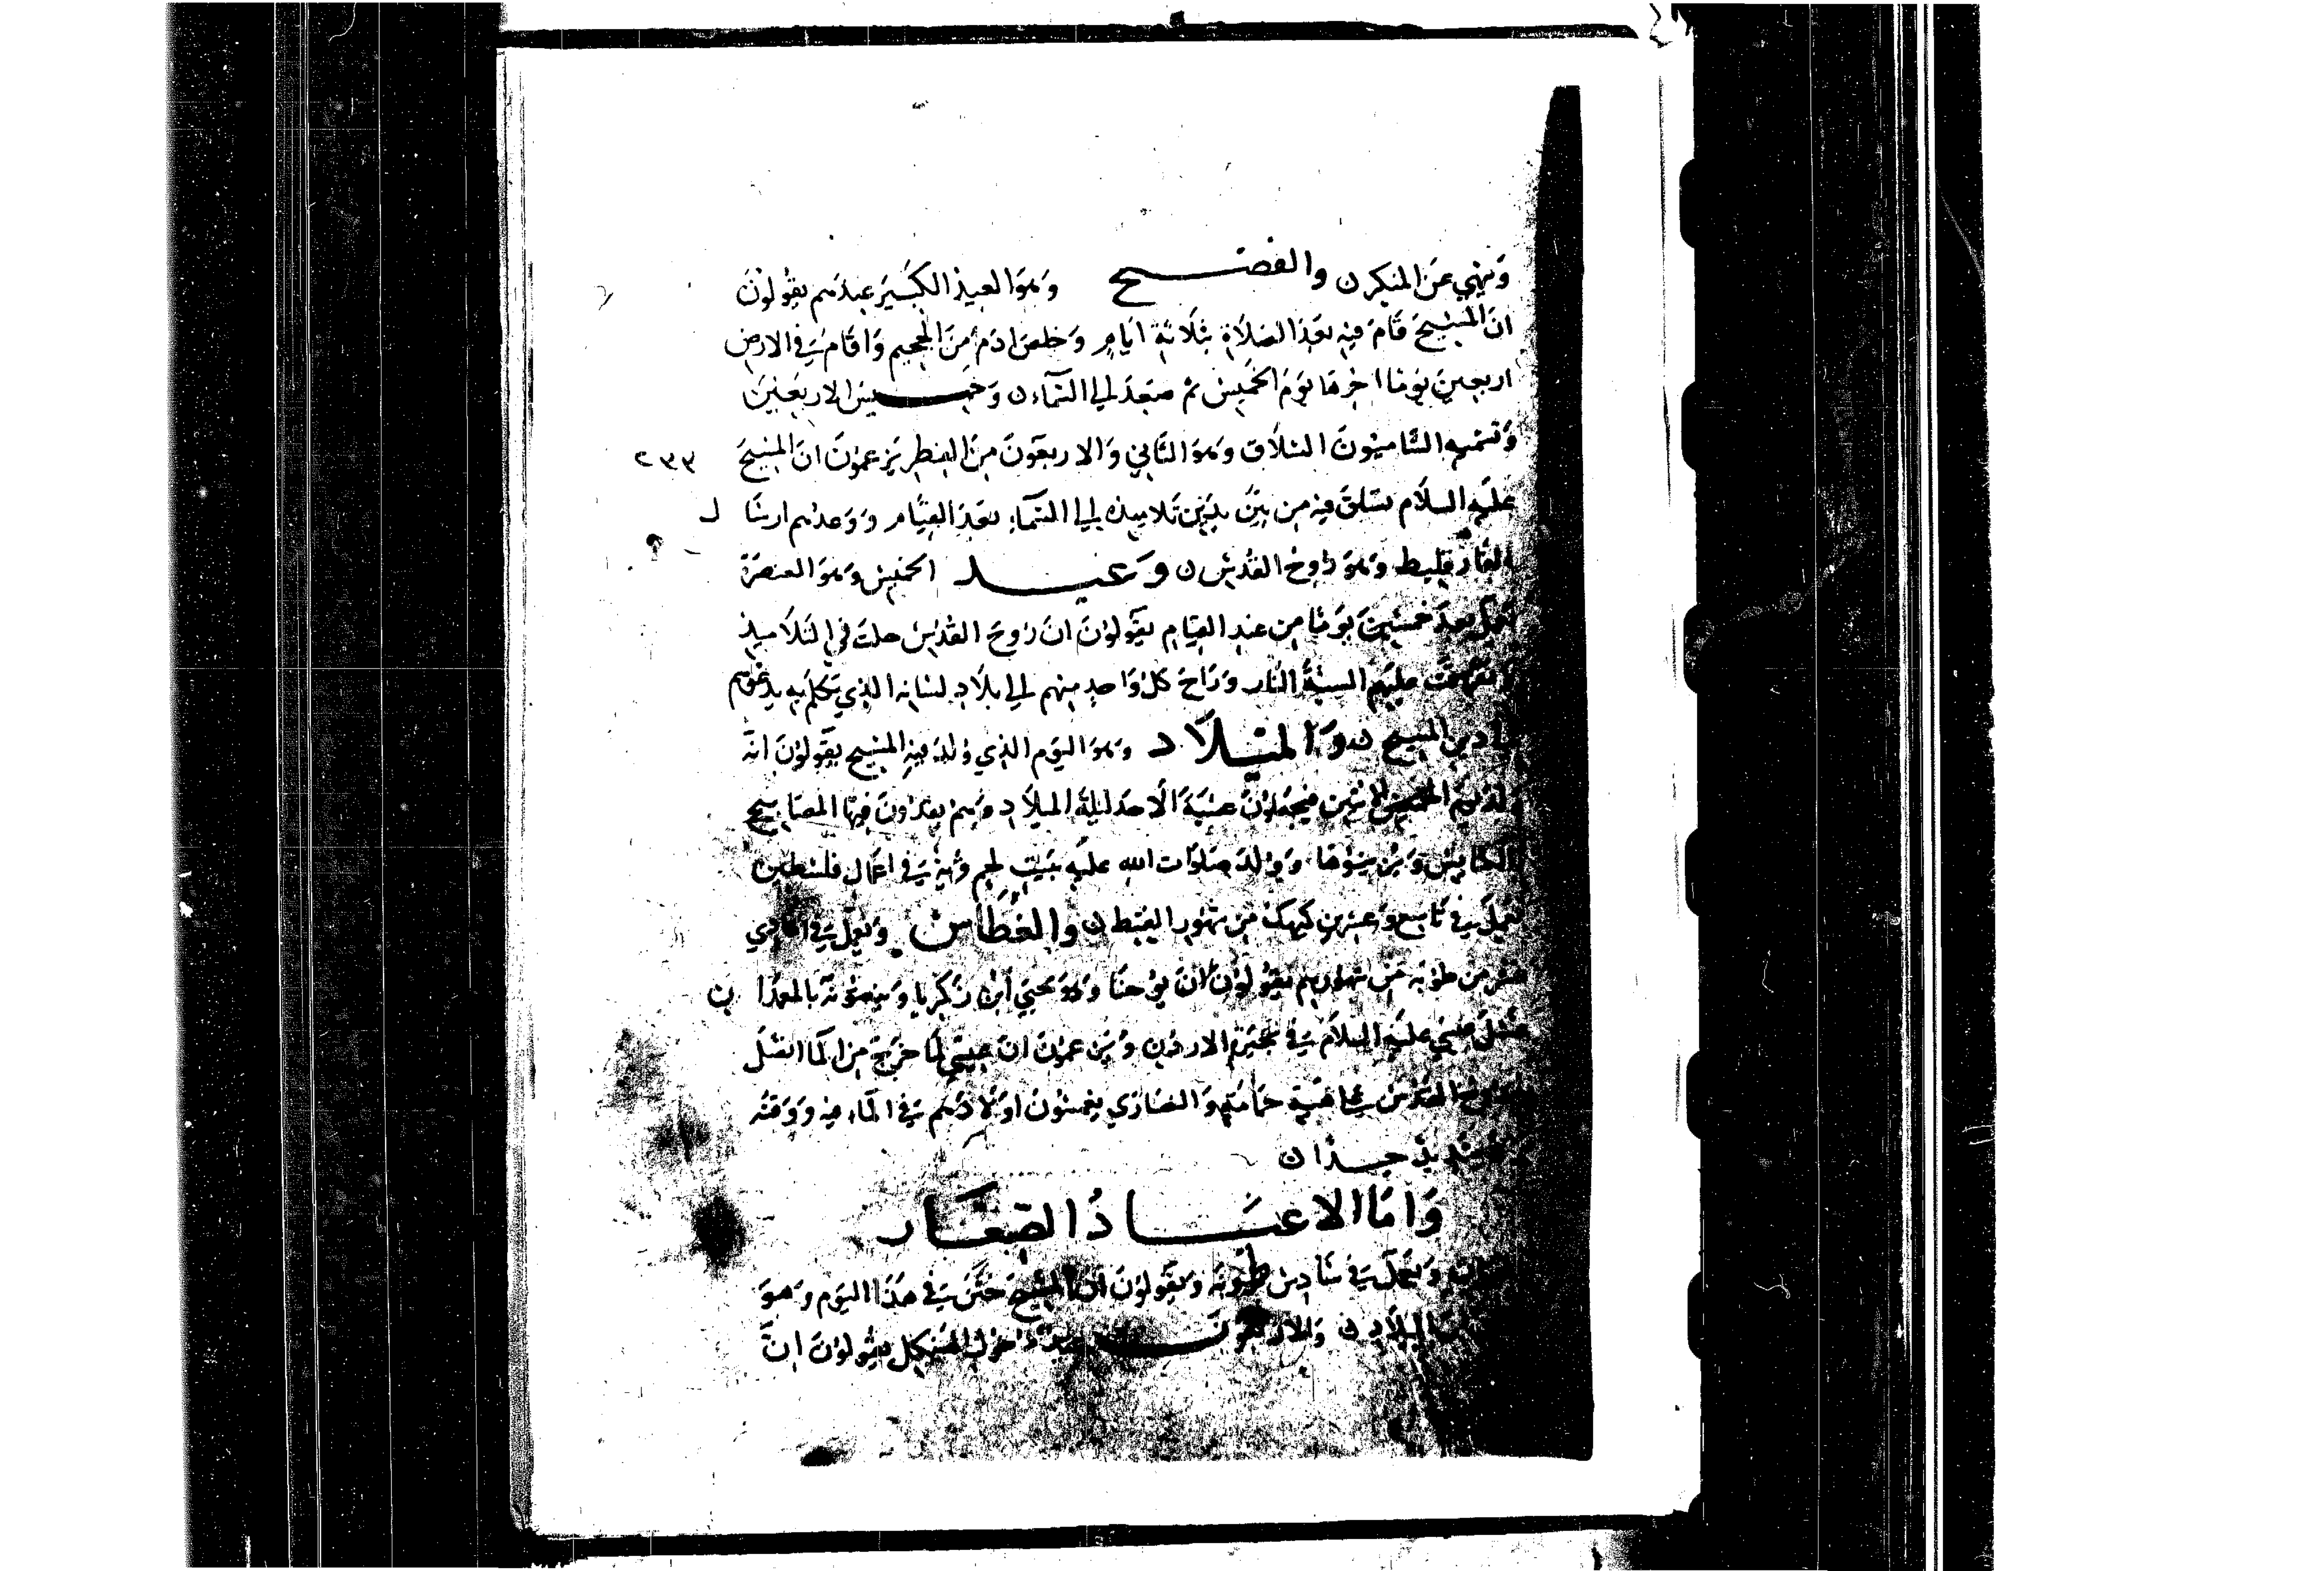 وينهي عن المنكر ن والفصح وهو العيد الكبير عندهم يقولون
ان المسيح قام فيه بعد الصلاة بثلاثة ايام وخلص ادم من الجحيم واقام في الارض
اربعين يوما اخرها يوم الخميس ثم صعد الي السماء ن وخميس الاربعين
وتسميه الشاميون السلاق وهو الثاني والاربعون من الفطر يزعمون ان المسيح ٢٣٣
عليه السلام تسلق فيه من بين يدين تلاميذه الي السماء بعد القيام ووعدهم ارسال
الفارقليط وهو روح القدس ن وعيد الخميس وهو العنصرة
تعمل بعد خمسين يوما من عيد القيام يقولون ان روح القدس حلت في التلاميذ
وتفرقت عليهم السنة النار وراح كل واحد منهم الي بلاد لسانه الذي يتكلم به يدعوهم
الي دين المسيح ن والميلاد وهو اليوم الذي ولد فيه المسيح يقولون انه
ولد يوم الاثنين فيجعلون عشية الاحد ليلة الميلاد وهم يقدون فيها المصابيح
الكنايس ويزينوها وولد صلوات الله عليه ببيت لحم وهي في اعمال فلسطين
تعمل في تاسع وعشرين كيهك من شهور القبط ن والغطاس ويعمل في الحادي
عشر من طوبه من شهورهم يقولون ان يوحنا وهو يحيي ابن زكريا وينعتونه بالمعمدان
غسل عيسي عليه السلام في بحيرة الاردن ويزعمون ان عيسي لما خرج من الما اتصل
به روح القدس علي هيئة حمامة والنصاري يغمسون اولادهم في الماء فيه ووقته
شديد جدا ن
واما الاعياد الصغار
ويعمل في سادس طوبه ويقولون ان المسيح ختن في هذا اليوم وهو
الميلاد ن والاربعون عيد دخول الهيكل يقولون ان